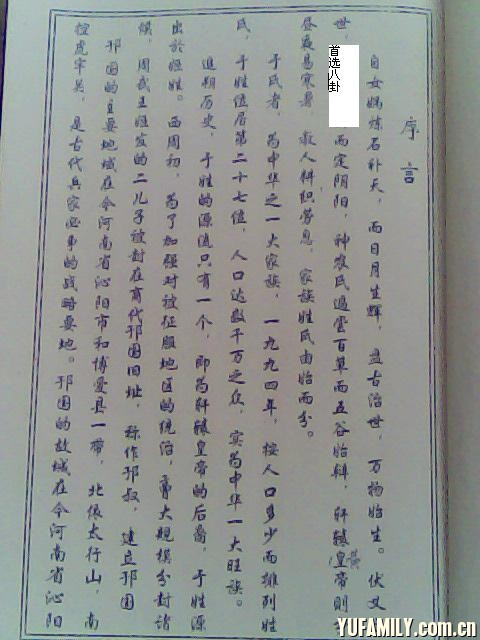 序言
自女娲炼石补天，而日月生辉，盘古治世，万物始生。伏义
世，首选八卦而定阴阳，神农氏遍尝百草而五谷始辩，轩辕皇帝则
昼夜易寒暑，教人耕织劳息，家族姓氏由始而分。
于氏者，为中华之一大家族，一九九四年，按人口多少而排列姓
氏，于姓位居第二十七位，人口达数千万之众，实为中华一大旺族。
追朔历史，于姓的源流只有一个，即为轩辕皇帝的后裔，于姓源
出於姬姓。西周初，为了加强对被征服地区的统治，常大规模分封诸
候，周武王姬发的二儿子被封在商代邗国旧址，称作邗叔，建立邗国
邗国的主要地域在今河南省沁阳市和博爱县一带，北依太行山，南
控虎牢关，是古代兵家必争的战略要地。邗国的故城在今河南省沁阳
YUFAMILY.com.cn